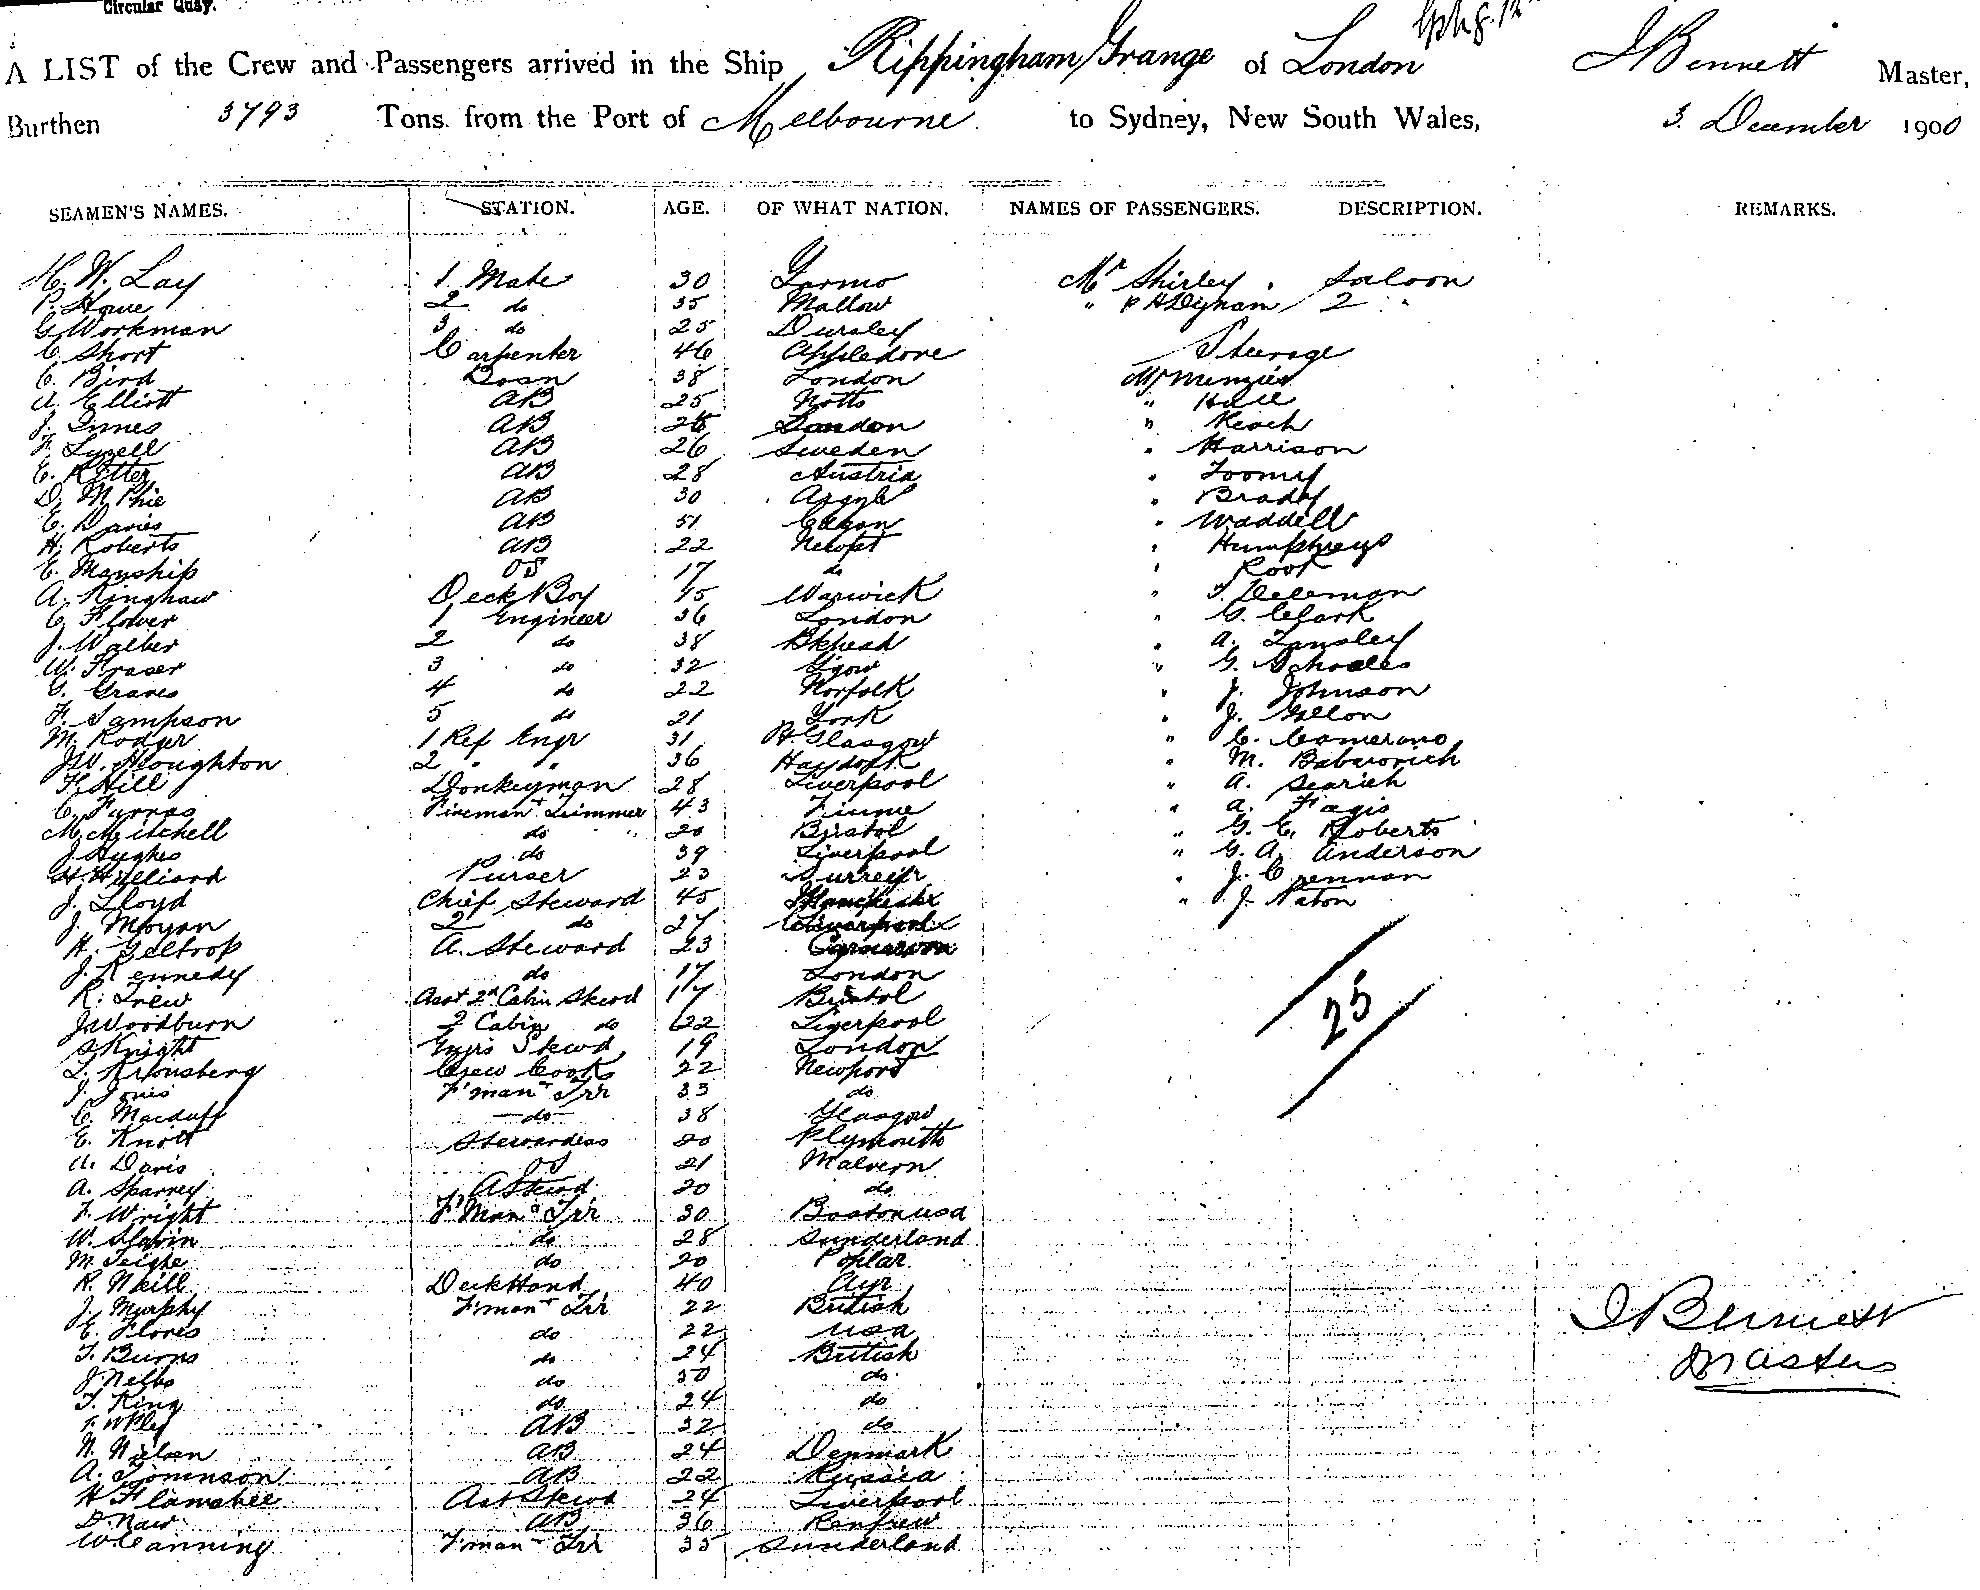 Circular Quay.
A LIST of the Crew and Passengers arrived in the Ship Rippingham Grange of London J Bennett Master,
Burthen 3793 Tons from the Port of Melbourne to Sydney, New South Wales, 3 December 1900
SEAMEN'S NAMES. STATION. AGE. OF WHAT NATION. NAMES OF PASSENGERS. DESCRIPTION. REMARKS.
H. W. Lay 1 Mate 30 Yarmo Mr Shirley Saloon
P. Howe 2 do 35 Mallow " 2 "
G Workman 3 do 25 Dursley
C. Short Carpenter 46 Appledore Steerage
C. Bird Bosn 38 London Mr Menzies
A. Elliott AB 25 Notts " Hall
J. Innes AB London " Keoch
F. Lyzell AB 26 Sweden " Harrison
C. Ritter AB 28 Austria " Toomey
D. McPhie AB 30 Argyle " Brady
E. Davies AB 51 " Waddell
H. Roberts AB 22 Newpt " Humphreys
E. Manship OS 17 do " Roof
A. Kinghaw Deck Boy 15 Warwick "
C. Flower 1 Engineer 36 London " G. Clark
J. Walber 2 do 38 Bkhead " A. Lansley
W. Fraser 3 do 32 Ggow " G. Schooles
G. Graves 4 do 22 Norfolk " J. Johnson
F. Sampson 5 do 21 York " J. Gellon
M. Rodger 1 Ref Engr 31 Glasgow " C. Camerano
J.W. Houghton 2 " " 36 Haydock " M. Baberovich
F. Hill Donkeyman 28 Liverpool " A. Searich
C. Farras Fireman + Trimmer 43 Fiume " A. Fagis
M. Mitchell do 20 Bristol " G. E. Roberts
J. Hughes do 39 Liverpool " G. A. Anderson
H. Hilliard Purser 23 Surrey " J. Crennan
J. Lloyd Chief Steward 45 Manchester " J. Naton
J. Morgan 2 do 27 Liverpool
H. Geltrop A. Steward 23 Carnarvon
J. Kennedy do 17 London
R. Trew Asst 2d Cabin Stewd 17 Bristol
J Woodburn 2 Cabin do 22 Liverpool
S Knight Engrs Stewd 19 London
L. Kronsberg Crew Cook 22 Newport
J. Jones F'man + Tr'r 33 do
C. Macduff do 38 Glasgow
E. Knott Stewardess 20 Plymouth
A. Davis OS 21 Malvern
A. Sparrey A Stewd 20 do
F. Wright F'Man + Tr'r 30 Boston usa
W. Slavin do 28 Sunderland
M. Teighe do 20 Poplar
R. Neill Deck Hand 40 Ayr
J. Murphy F'man + Tr'r 22 British
E. Flores do 22 usa
T. Burns do 24 British
J. Nelbs do 30 do
T. King do 24 do
AB 32 do
N. Nielsen AB 24 Denmark
A. Tominson AB 22 Russia
H Flamshee Ast Stewd 24 Liverpool
D. Naw AB 36 Renfrew
W. Canning F'man + Tr'r 35 Sunderland
25
J Bennett
Master